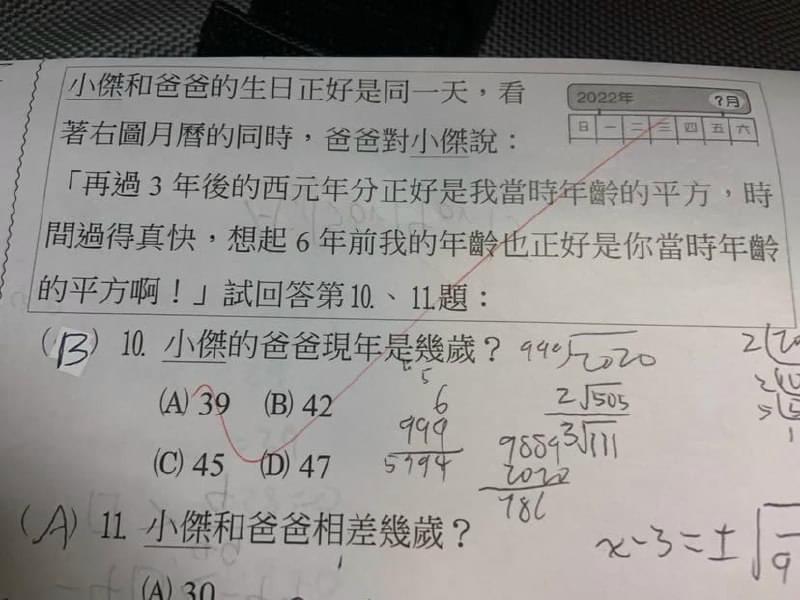 小傑和爸爸的生日正好是同一天，看
2022年 ?月
日 一 二 三 四 五 六
著右圖月曆的同時，爸爸對小傑說：
「再過 3 年後的西元年分正好是我當時年齡的平方，時
間過得真快，想起 6 年前我的年齡也正好是你當時年齡
的平方啊！」試回答第10.、11.題：
(B) 10. 小傑的爸爸現年是幾歲？
(A) 39 (B) 42
(C) 45 (D) 47
2020
2√505
3√111
6
999
2020
786
(A) 11. 小傑和爸爸相差幾歲？
x-3=±√
9
(A) 30